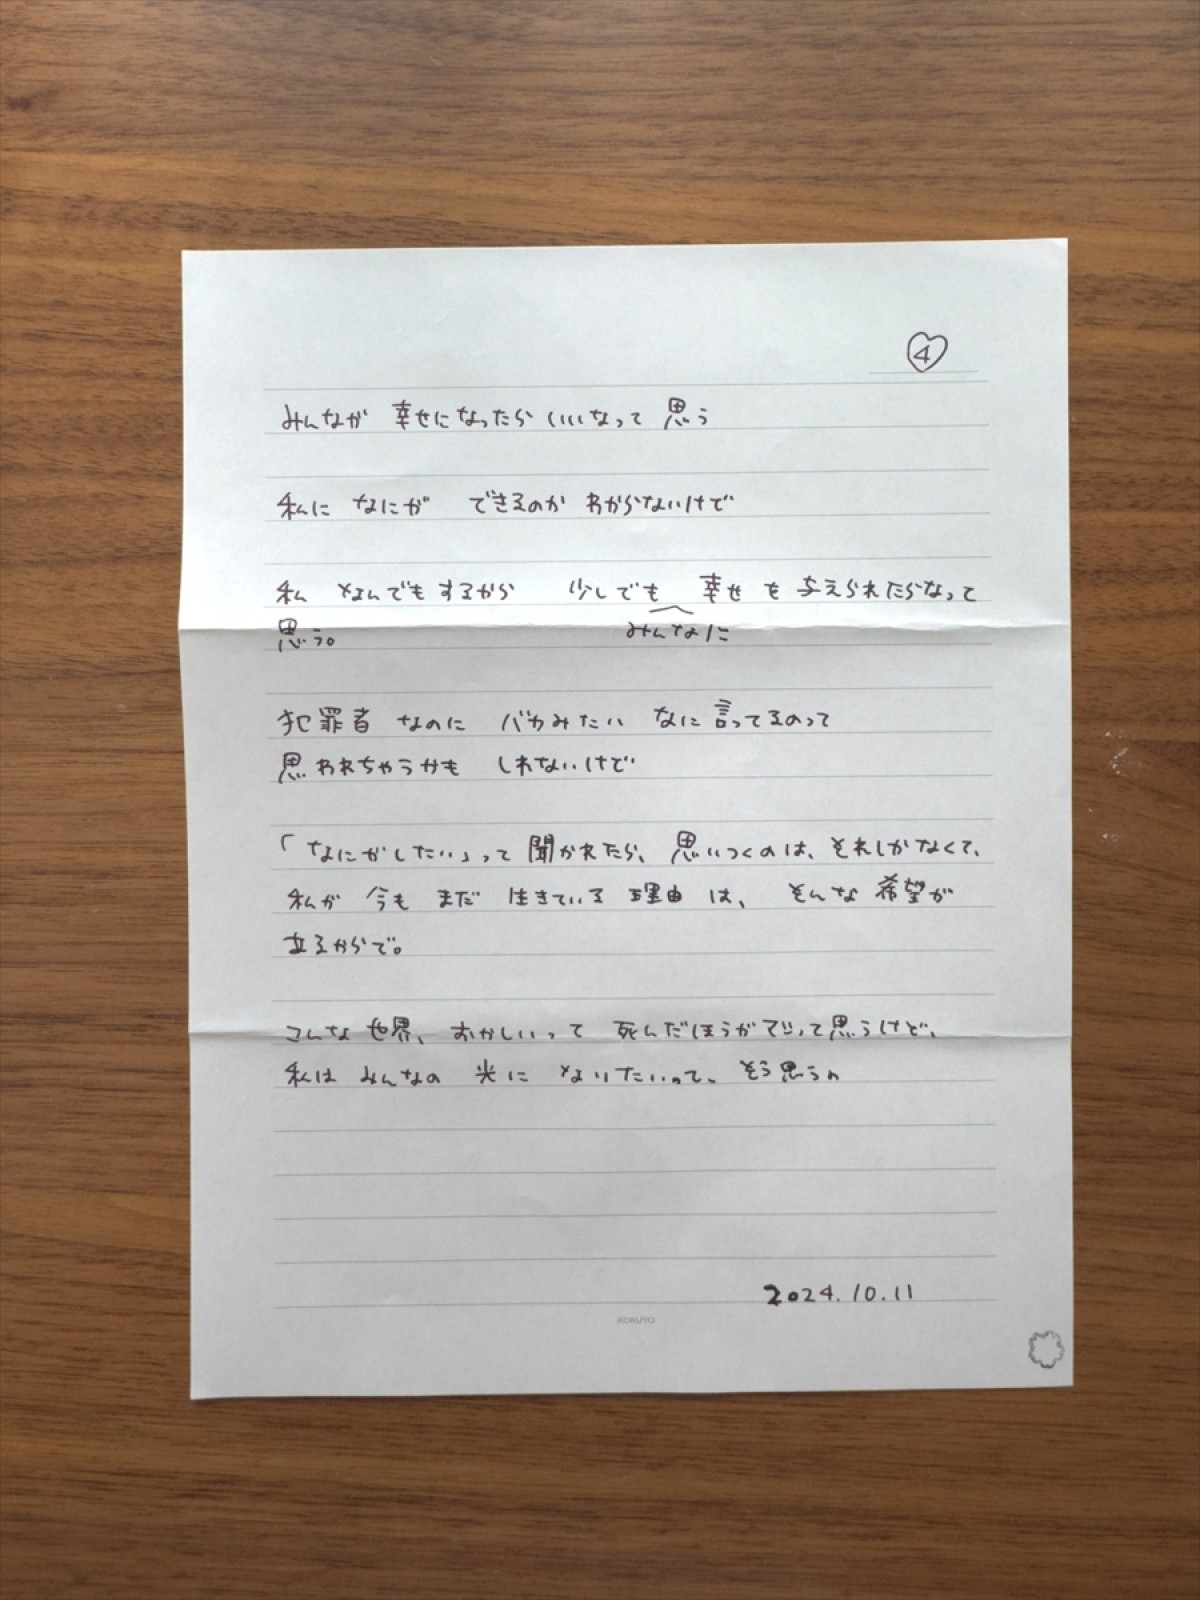 4
みんなが 幸せになったらいいなって 思う
私に なにが できるのか わからないけど
私 なんでもするから 少しでも 幸せ を 与えられたらなって
みんなに
思う。
犯罪者 なのに バカみたい なに言ってるのって
思われちゃうかも しれないけど
「なにがしたい」って 聞かれたら、思いつくのは、それしかなくて、
私が 今も まだ 生きている 理由 は、 そんな 希望が
あるからで。
こんな 世界、おかしいって 死んだほうが って思うけど、
私は みんなの 光に なりたいって、そう思うの
2024.10.11
KOKUYO